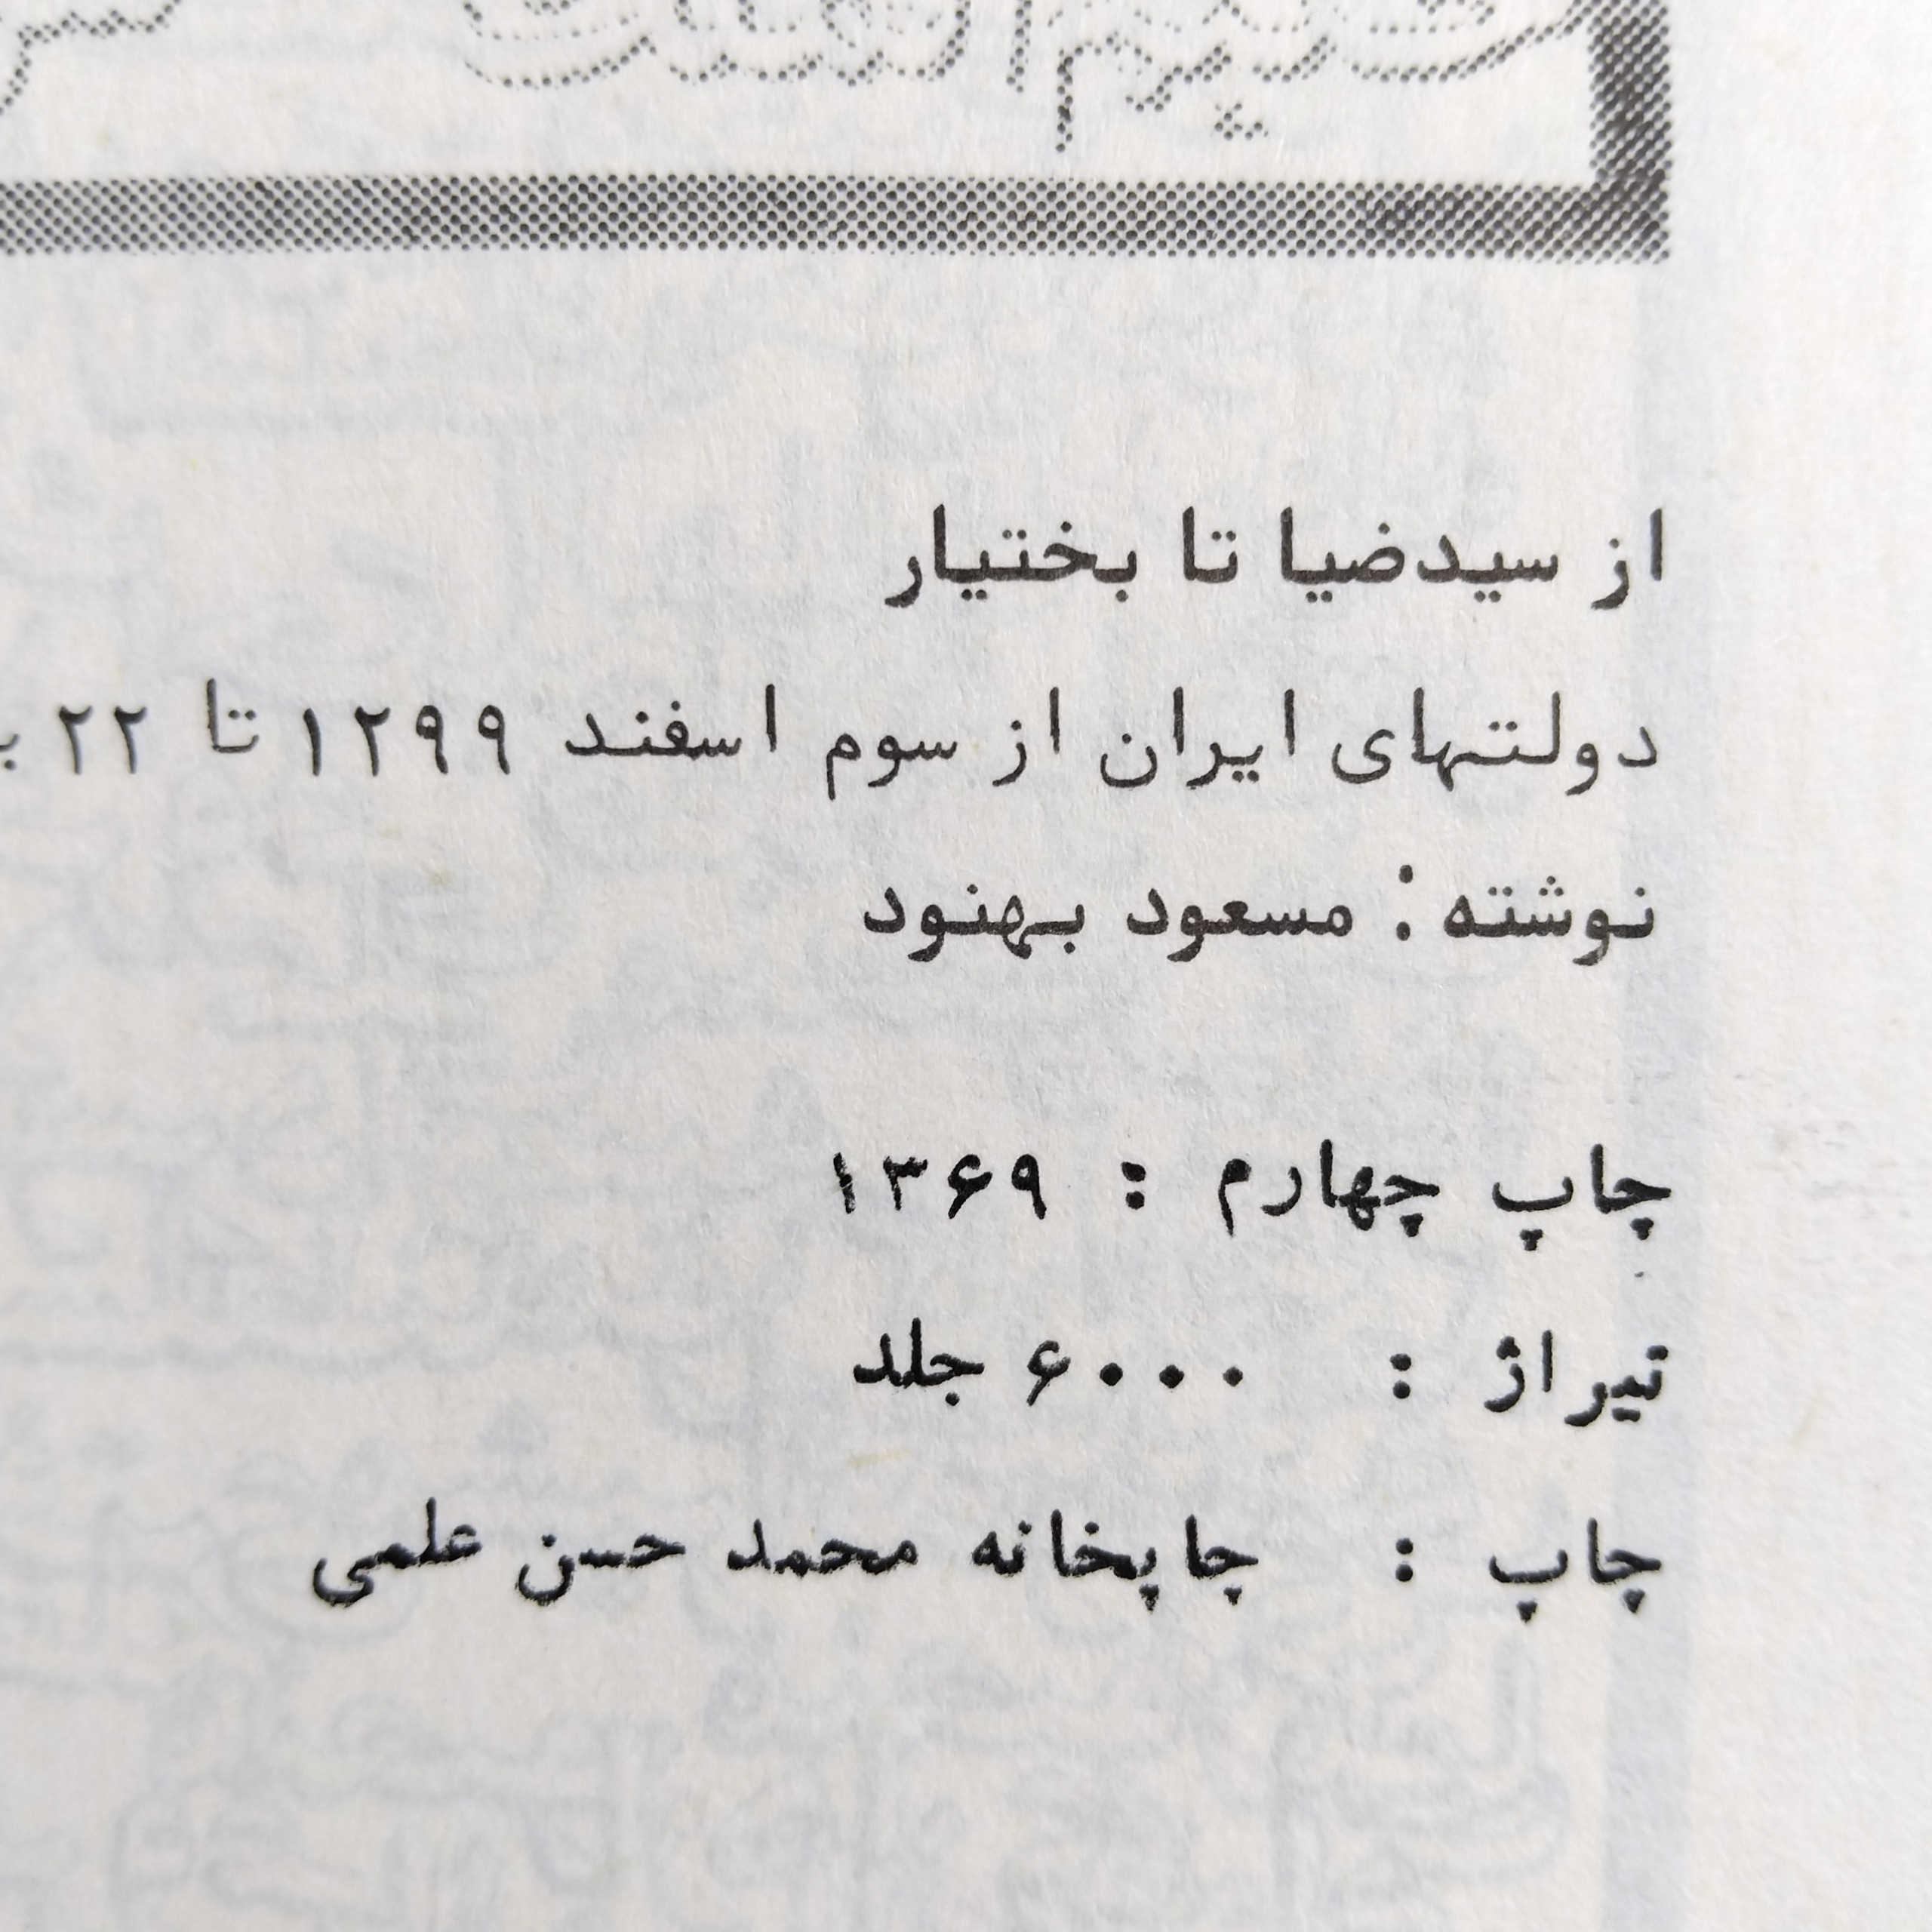 از سیدضیا تا بختیار
دولتهای ایران از سوم اسفند ۱۲۹۹ تا ۲۲
نوشته : مسعود بهنود
چاپ چهارم : ۱۳۶۹
تیراژ : ۶۰۰۰ جلد
چاپ : چاپخانه محمد حسن علمی